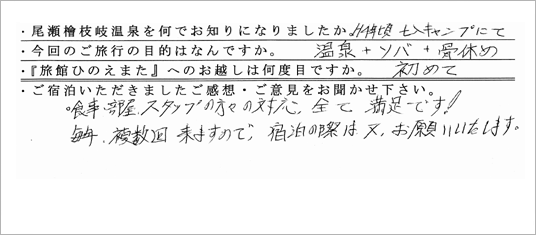 ・尾瀬檜枝岐温泉を何でお知りになりましたか。H4年頃 七入キャンプにて
・今回のご旅行の目的はなんですか。 温泉+ソバ+骨休め
・『旅館ひのえまた』へのお越しは何度目ですか。 初めて
・ご宿泊いただきましたご感想・ご意見をお聞かせ下さい。
食事、部屋、スタッフの方々の対応、全て満足です!
毎年、複数回来ますので、宿泊の際は又、お願いいたします。